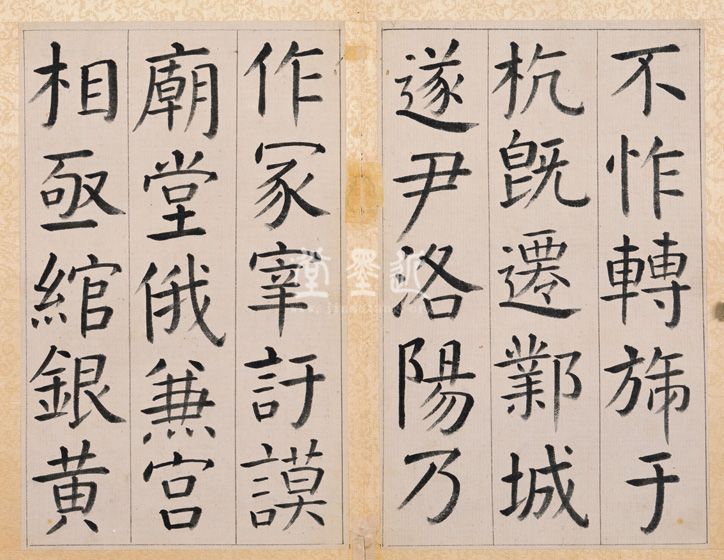 不怍轉旆于
杭既遷鄴城
遂尹洛陽乃
作冢宰訏謨
廟堂俄兼宫
相亟綰銀黄
近墨堂